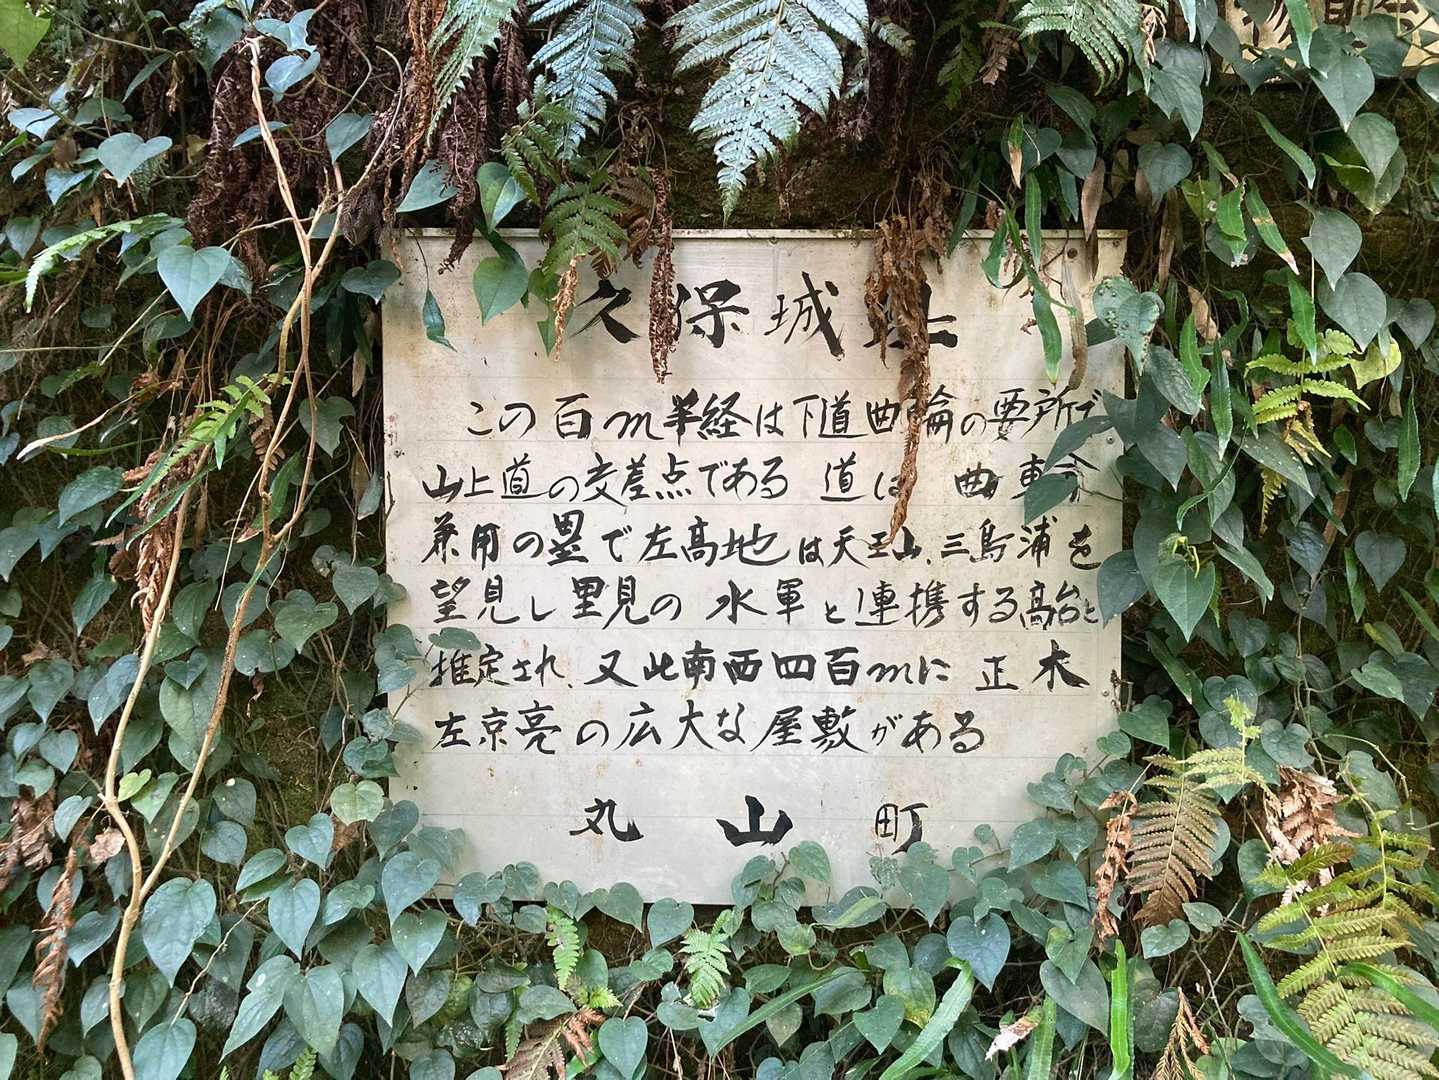 久保城址
この百m半経は下道曲輪の要所で
山上道の交差点である 道は 曲東
兼用の塁で左高地は天王山、三島浦を
望見し里見の 水軍と連携する高台と
推定され、又此南西四百mに 正木
左京亮の広大な屋敷がある
丸山町